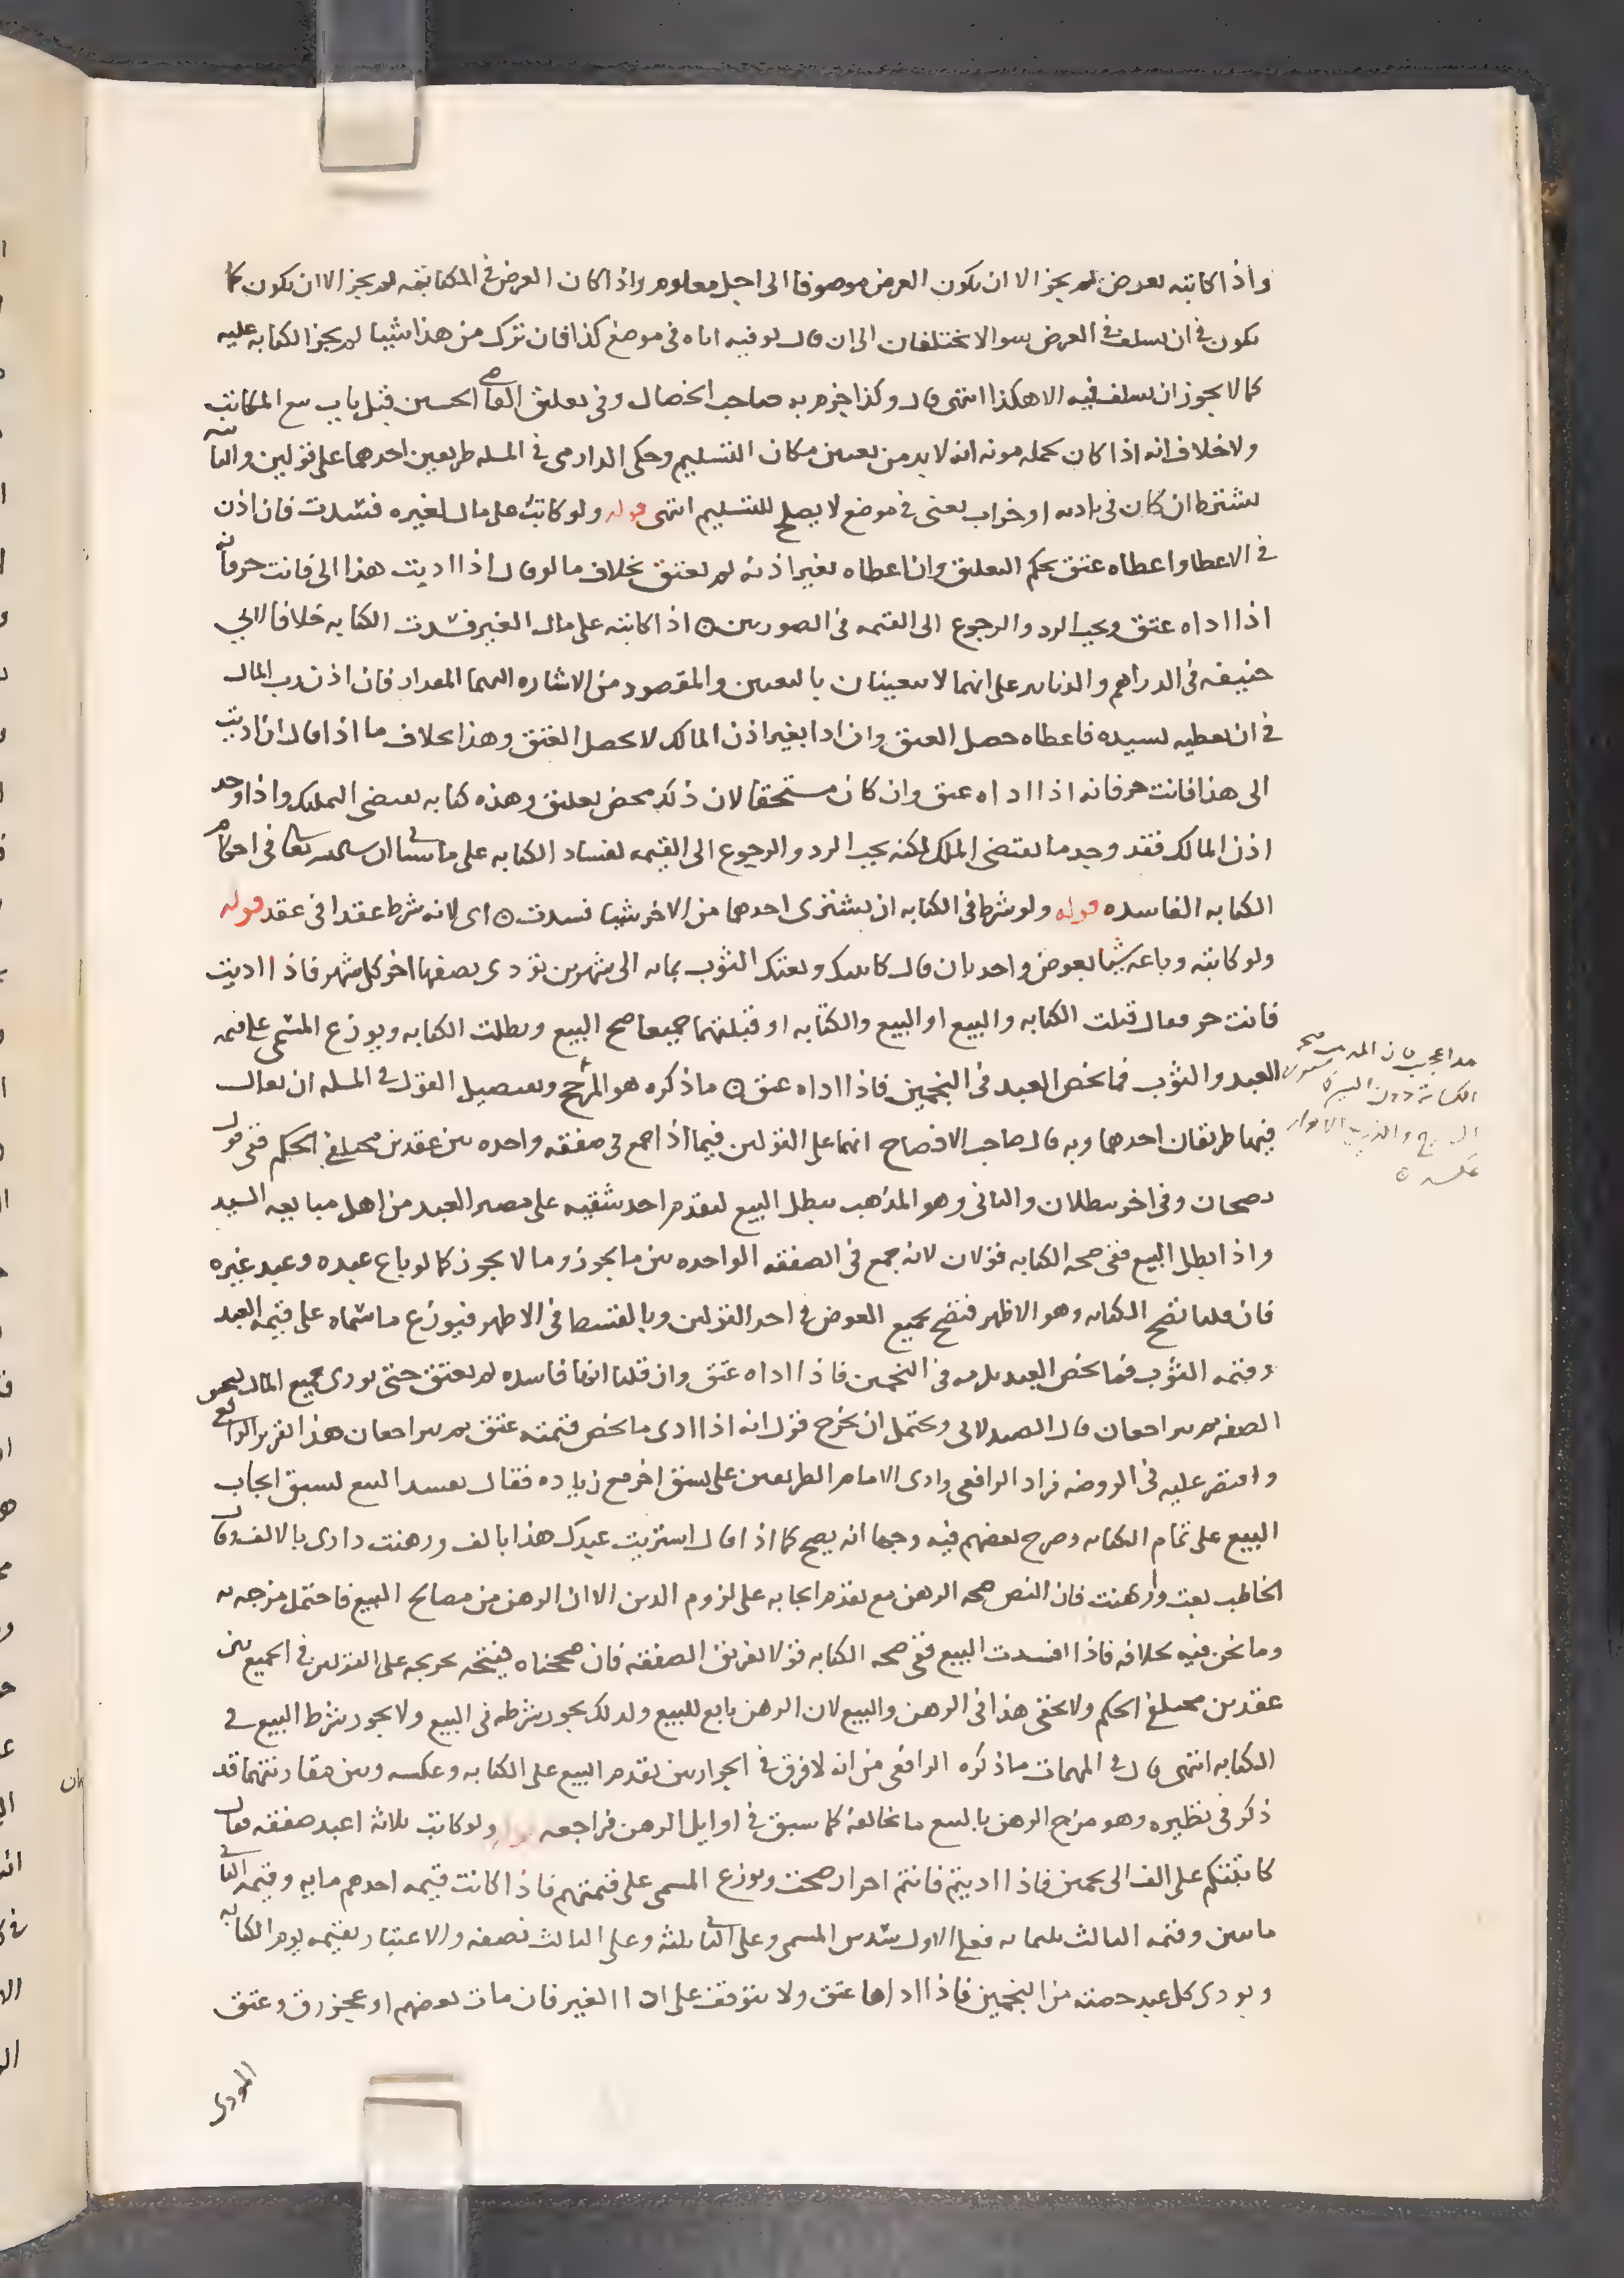 واذا كاتبه بعرض لم يجز الا ان يكون العرض موصوفا الى اجل معلوم واذا كان العرض في المكاتبة لم يجز الا ان يكون كما
يكون في ان يسلف في العرض سوا لا يختلفان الى ان قال يوفيه اياه في موضع كذا فان ترك من هذا شيا لم يجز الكتابه عليه
كما لا يجوز ان يسلف فيه الا هكذا انتهى قال وكذا جزم به صاحب الخصال وفي تعليق القاضي الحسين قبيل باب بيع المكاتب
ولا خلاف انه اذا كان لحمله مونه انه لا بد من تعيين مكان التسليم وحكى الدارمي في المسله طريقين احدهما على قولين والثانيه
يشترط ان كان في باديه او خراب يعني في موضع لا يصلح للتسليم انتهى قوله ولو كاتب على مال لغيره فسدت فان اذن
في الاعطا واعطاه عتق بحكم التعليق وان اعطاه بغير اذنه لم يعتق بخلاف ما لو قال اذا اديت هذا الى فانت حر فانه
اذا اداه عتق ويجب الرد والرجوع الى القيمه في الصورتين ه اذا كاتبه على مال الغير فسدت الكتابه خلافا لابي
حنيفه في الدراهم والدنانير على انهما لا يتعينان بالتعيين والمقصود من الاشاره اليهما المقدار فان اذن رب المال
في ان يعطيه لسيده فاعطاه حصل العتق وان ادا بغير اذن المالك لا يحصل العتق وهذا بخلاف ما اذا قال ان اديت
الى هذا فانت حر فانه اذا اداه عتق وان كان مستحقا لان ذلك محض تعليق وهذه كتابه تقتضي التمليك واذا وجد
اذن المالك فقد وجد ما يقتضي الملك لكنه يجب الرد والرجوع الى القيمه لفساد الكتابه على ما سياتي ان شا الله تعالى في احكام
الكتابه الفاسده قوله ولو شرط في الكتابه ان يشتري احدهما من الاخر شيا فسدت ه اي لانه شرط عقدا في عقد قوله
ولو كاتبه وباعه شيا بعوض واحد بان قال كاتبتك وبعتك الثوب بمايه الى شهرين تؤدي نصفها اخر كل شهر فاذا اديت
فانت حر فقال قبلت الكتابه والبيع او البيع والكتابه او قبلتهما جميعا صح البيع وبطلت الكتابه ويوزع المسمى على قيمه
العبد والثوب فما يخص العبد في النجمين فاذا اداه عتق ه ما ذكره هو المرجح وتفصيل القول في المسله ان يقال
فيها طريقان احدهما وبه قال صاحب الافصاح انهما على القولين فيما اذا جمع في صفقه واحده بين عقدين مختلفي الحكم ففي قول
يصحان وفي اخر يبطلان والثاني وهو المذهب يبطل البيع لتقدم احد شقيه على مصير العبد من اهل مبايعه السيد
واذا بطل البيع ففي صحه الكتابه قولان لانه جمع في الصفقه الواحده بين ما يجوز وما لا يجوز كما لو باع عبده وعبد غيره
فان قلنا تصح الكتابه وهو الاظهر فتصح بجميع العوض في احد القولين وبالقسط في الاظهر فيوزع ما سماه على قيمه العبد
وقيمه الثوب فما يخص العبد يلزمه في النجمين فاذا اداه عتق وان قلنا انها فاسده لم يعتق حتى يودي جميع المال
الصفه ثم يتراجعان قال الصيدلاني ويحتمل ان يخرج قول انه اذا ادى ما يخص قيمته عتق ثم يتراجعان هذا تقرير الرافعي
واقتصر عليه في الروضه فزاد الرافعي وادى الامام الطريقين على نسق اخر مع زياده فقال يفسد البيع لسبق ايجاب
البيع على تمام الكتابه وصرح بعضهم فيه وجها انه يصح كما اذا قال اشتريت عبدك هذا بالف ورهنت داري بالالف وقال
المخاطب بعت وارتهنت فان النص صحه الرهن مع تقدم ايجابه على لزوم الدين الا ان الرهن من مصالح البيع فاحتمل مزجه به
وما نحن فيه بخلافه فاذا افسدت البيع ففي صحه الكتابه قولا تفريق الصفقه فان صححناه فيتجه تخريجه على القولين في الجميع بين
عقدين مختلفي الحكم ولا يخفى هذا في الرهن والبيع لان الرهن تابع للبيع ولذلك يجوز شرطه في البيع ولا يجوز شرط البيع في
الكتابه انتهى قال في المهمات ما ذكره الرافعي من انه لا فرق في الجواز بين تقدم البيع على الكتابه وعكسه وبين مقارنتهما قد
ذكر في نظيره وهو مزج الرهن بالبيع ما يخالفه كما سبق في اوايل الرهن فراجعه قوله ولو كاتب ثلاثه اعبد صفقه فقال
كاتبتكم على الف الى نجمين فاذا اديتم فانتم احرار صحت ويوزع المسمى على قيمتهم فاذا كانت قيمه احدهم مايه وقيمه الثاني
مايتين وقيمه الثالث ثلثمايه فعلى الاول سدس المسمى وعلى الثاني ثلثه وعلى الثالث نصفه والاعتبار بقيمه يوم الكتابه
ويودي كل عبد حصته من النجمين فاذا اداها عتق ولا يتوقف على ادا الغير فان مات بعضهم او عجز رق وعتق
المودي